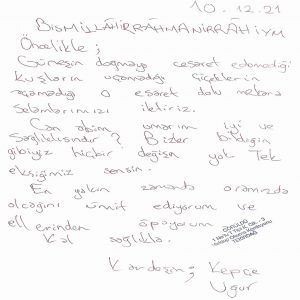 10.12.21
BiSMiLLÂHiRRÂHMANiRRÂHiYM
Öncelikle;
Güneşin doğmaya cesaret edemediği
kuşların uçamadığı çiçeklerin
açamadığı o esaret dolu mekana
selamlarımızı iletiriz.
Can abim umarım iyi ve
Sağlıklısındır? Bizler bildiğin
gibiyiz hiçbir değişen yok Tek
eksiğimiz sensin.
En yakın zamanda aramızda
olcağını ümit ediyorum ve
ellerinden öpüyorum
Kal sağlıkla.
GÖRÜLDÜ
Kardeşin; Kepçe
Uğur